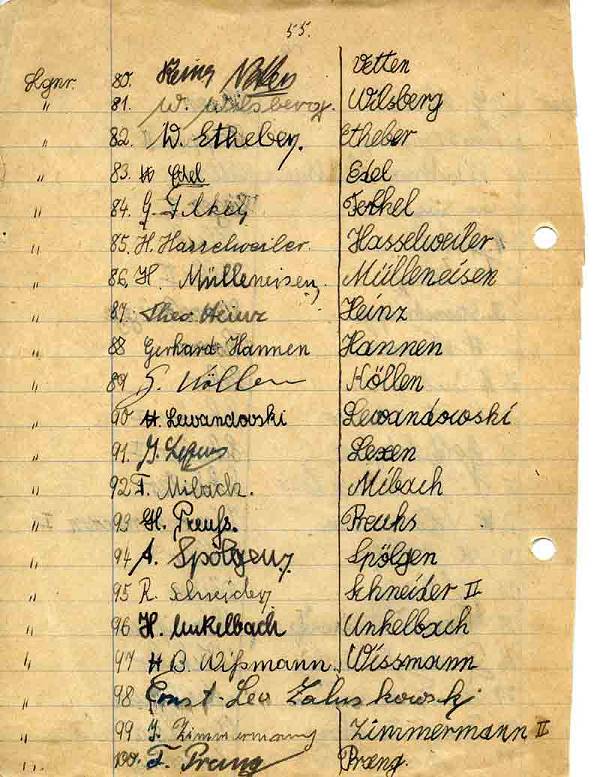 55.
Lgnr. 80. Heinz Vetten
" 81. W. Wilsberg. Wilsberg
" 82. W. Etheber. Etheber
" 83. W Edel Edel
" 84. G. Ferkel
" 85. H. Hasselweiler Hasselweiler
" 86. H. Mülleneisen Mülleneisen
" 87. Theo Heinz Heinz
" 88 Gerhard Hannen Hannen
" 89 Höllen Höllen
" 90 H. Lewandowski Lewandowski
" 91. J. Lexen Lexen
" 92 F. Mibach. Mibach
" 93 H. Preuß. Preuhs
" 94 A. Spölgen Spölgen
" 95 R. Schneider Schneider II
" 96 H. Unkelbach Unkelbach
" 97 H B. Wißmann. Wissmann
" 98 Ernst-Leo Zaluskowski
" 99 J. Zimmermann Zimmermann II
" 100. F. Prang Prang.